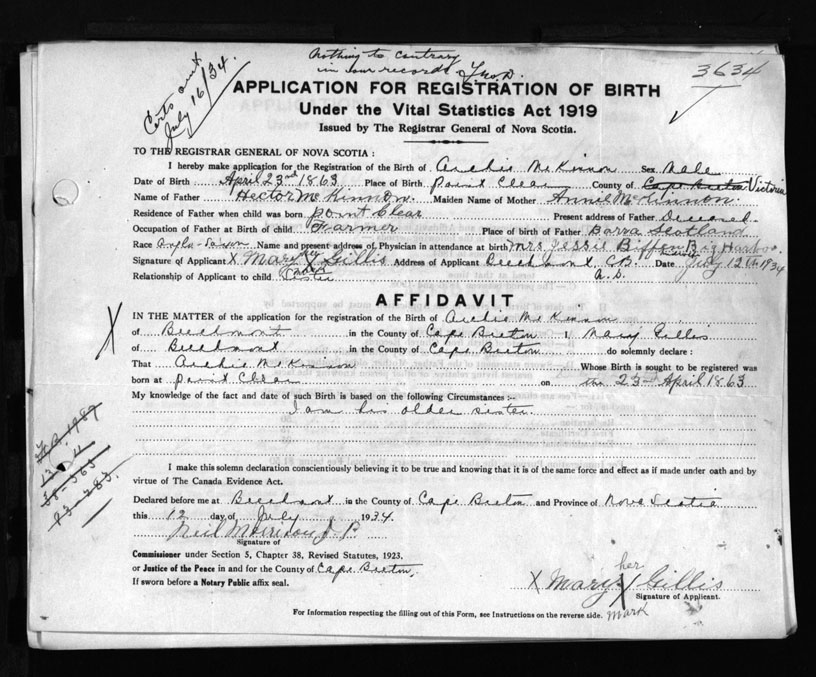 Nothing to contrary
in our records
3634
Certs out
July 16/34.
APPLICATION FOR REGISTRATION OF BIRTH
Under the Vital Statistics Act 1919
Issued by The Registrar General of Nova Scotia.
TO THE REGISTRAR GENERAL OF NOVA SCOTIA :
I hereby make application for the Registration of the Birth of Archie McKinnon Sex Male
Date of Birth April 23rd 1863 Place of Birth Point Clear County of Cape Breton Victoria
Name of Father Hector McKinnon. Maiden Name of Mother Annie McKinnon.
Residence of Father when child was born point Clear Present address of Father Deceased.
Occupation of Father at Birth of child Farmer Place of birth of Father Barra Scotland
Race Anglo-Saxon Name and present address of Physician in attendance at birth Mrs Jessie Big Harbor
Signature of Applicant X Mary X Gillis Address of Applicant Beechmont C.B. Date July 12th 1934
her mark
Relationship of Applicant to child Sister
AFFIDAVIT
IN THE MATTER of the application for the registration of the Birth of Archie McKinnon
of Beechmont in the County of Cape Breton I Mary Gillis
of Beechmont in the County of Cape Breton do solemnly declare :
That Archie McKinnon Whose Birth is sought to be registered was
born at point Clear on the 23rd April 1863
My knowledge of the fact and date of such Birth is based on the following Circumstances :-
I am his older sister.
I make this solemn declaration conscientiously believing it to be true and knowing that it is of the same force and effect as if made under oath and by
virtue of The Canada Evidence Act.
Declared before me at Beechmont in the County of Cape Breton and Province of Nova Scotia
this 12 day of July 1934.
Neil Morrison J. P.
Signature of
Commissioner under Section 5, Chapter 38, Revised Statutes, 1923.
or Justice of the Peace in and for the County of Cape Breton.
If sworn before a Notary Public affix seal.
her
X Mary X Gillis
mark
Signature of Applicant.
For Information respecting the filling out of this Form, see Instructions on the reverse side.